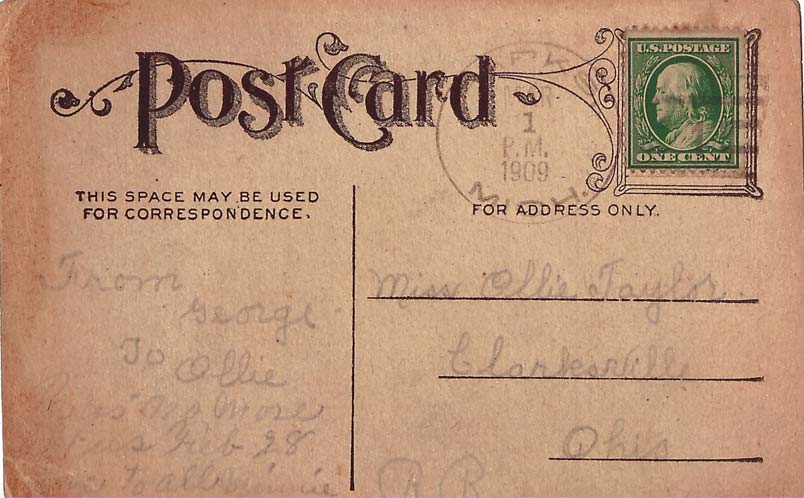 Post Card
U.S. POSTAGE
ONE CENT
1
P.M.
1909
THIS SPACE MAY BE USED
FOR CORRESPONDENCE.
FOR ADDRESS ONLY.
From
George
To
Ollie
No More
Feb 28
to all Minnie
Miss Ollie Taylor
Clarksville
Ohio
R R